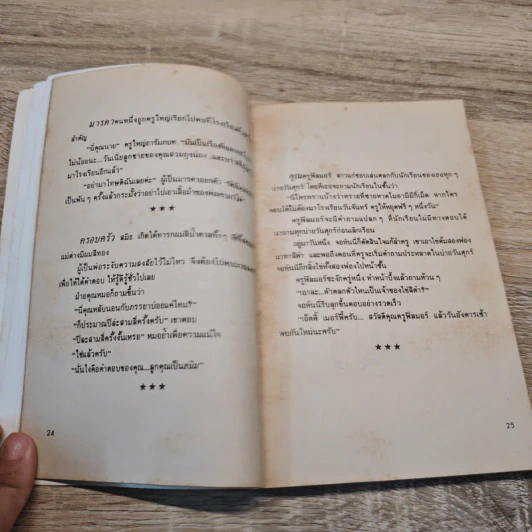 มารดาคนหนึ่งถูกครูใหญ่เรียกไปพบที่โรงเรียนด้วย
สำคัญ
"นี่คุณนาย" ครูใหญ่อารัมภบท "มันเป็นเรื่อง
ไม่น้อยนะ...วันเนี้ยลูกชายของคุณสวม
มาโรงเรียนอีกแล้ว"
"อย่ามาโทษดิฉันเลยค่ะ" ผู้เป็นมารดาบอกปัด
เป็นพัน ๆ ครั้งแล้วกระมังว่าอย่าไปเอาเสื้อผ้าของพ่อ
★★★
ครอบครัว สมิธ เกิดได้ทารกผมสีน้ำตาลทั้งๆ
แม่ต่างมีผมสีทอง
ผู้เป็นพ่อระงับความสงสัยไว้ไม่ไหว จึงต้องไป
เพื่อให้ได้คำตอบ ให้รู้ชั่วไปเลย
ฝ่ายคุณหมอก็ถามขึ้นว่า
"นี่คุณหลับนอนกับภรรยาบ่อยแค่ไหน?"
"ก็ประมาณปีล่ะสามสี่ครั้งครับ" เขาตอบ
"ปีละสามสี่ครั้งงั้นเหรอ" หมอย้ำเพื่อความแน่ใจ
"ใช่แล้วครับ"
"นั่นไงคือคำตอบของคุณ...ลูกคุณเป็นสนิม"
★★★
24
คุณครูฟิลมอร์ สาวแก่ชอบเล่นตลกกับนักเรียนของเธอทุก ๆ
บ่ายวันศุกร์ โดยที่เธอจะถามนักเรียนในชั้นว่า
"นี่ใครทราบบ้างว่าทรายที่ชายหาดไมอามีมีกี่เม็ด หากใคร
ตอบได้ไม่ต้องมาโรงเรียนวันจันทร์ ครูให้หยุดฟรี ๆ หนึ่งวัน"
ครูฟิลมอร์จะมีคำถามแปลก ๆ ที่นักเรียนไม่มีทางตอบได้
มาถามทุกบ่ายวันศุกร์ก่อนเลิกเรียน
อยู่มาวันหนึ่ง จอห์นนี่ก็ตัดสินใจแก้ลำครู เขาเอาไข่คืนสองฟอง
มาทาสีดำ และพอถึงตอนที่ครูจะเริ่มคำถามประหลาดในบ่ายวันศุกร์
จอห์นนี่ก็กลิ้งไข่ทั้งสองฟองไปหน้าชั้น
ครูฟิลมอร์ชะงักครู่หนึ่ง ทำหน้าบึ้งแล้วถามห้วนๆ
"เอาละ...ตัวตลกตัวไหนเป็นเจ้าของไข่สีดำ?"
จอห์นนี่รีบลุกขึ้นตอบอย่างรวดเร็ว
"เอ็ดดี้ เมอร์ฟี่ครับ... สวัสดีคุณครูฟิลมอร์ แล้ววันอังคารเช้า
พบกันใหม่นะครับ"
★★★
25